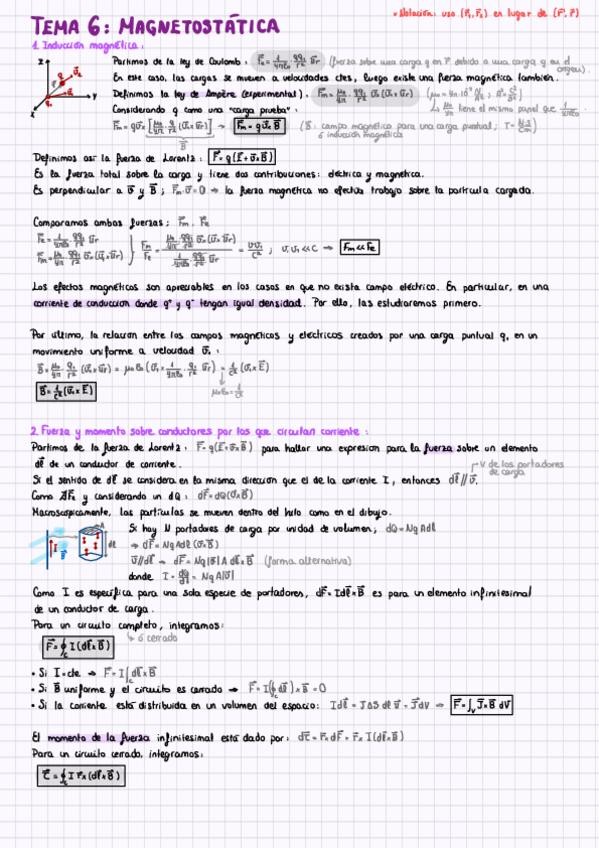 TEMA 6: MAGNETOSTÁTICA
* Notación: uso (r⃗₁, r⃗₂) en lugar de (r⃗', r⃗)
1. Inducción magnética:
Partimos de la ley de Coulomb: F⃗e = 1/4πε₀ · qq₁/r² u⃗r (fuerza sobre una carga q en r⃗ debido a una carga q₁ en el origen).
En este caso, las cargas se mueven a velocidades ctes, luego existe una fuerza magnética también.
Definimos la ley de Ampère (experimental). F⃗m = μ₀/4π · qq₁/r² v⃗x(v⃗₁xu⃗r)
↳ μ₀ tiene el mismo papel que 1/4πε₀
Considerando q como una "carga prueba":
F⃗m = qv⃗x[μ₀/4π · q₁/r² (v⃗₁xu⃗r)] → F⃗m = qv⃗xB⃗ (B⃗: campo magnético para una carga puntual; T =
B⃗ ó inducción magnética
Definimos así la fuerza de Lorentz: F⃗ = q(E⃗+v⃗xB⃗)
Es la fuerza total sobre la carga y tiene dos contribuciones: eléctrica y magnética.
Es perpendicular a v⃗ y B⃗; F⃗m·v⃗ = 0 → la fuerza magnética no efectúa trabajo sobre la partícula cargada.
Comparamos ambas fuerzas; F⃗m, F⃗e
F⃗e = 1/4πε₀ · qq₁/r² u⃗r
F⃗m = μ₀/4π · qq₁/r² v⃗x(v⃗₁xu⃗r)
Fm/Fe = μ₀/4π · qq₁/r² v⃗x(v⃗₁xu⃗r) / 1/4πε₀ · qq₁/r² u⃗r = v·v₁/c²; v, v₁ << c → Fm << Fe
Los efectos magnéticos son apreciables en los casos en que no exista campo eléctrico. En particular, en una
corriente de conducción donde q⁺ y q⁻ tengan igual densidad. Por ello, las estudiaremos primero.
Por último, la relación entre los campos magnéticos y eléctricos creados por una carga puntual q₁ en un
movimiento uniforme a velocidad v⃗₁:
B⃗ = μ₀/4π · q₁/r² (v⃗₁xu⃗r) = μ₀ε₀(v⃗₁x 1/4πε₀ · q₁/r² u⃗r) = 1/c² (v⃗₁xE⃗)
μ₀ε₀ = 1/c²
B⃗ = 1/c² (v⃗₁xE⃗)
2. Fuerza y momento sobre conductores por los que circulan corriente:
Partimos de la fuerza de Lorentz: F⃗ = q(E⃗+v⃗xB⃗) para hallar una expresión para la fuerza sobre un elemento
dl⃗ de un conductor de corriente.
v de los portadores de carga
Si el sentido de dl⃗ se considera en la misma dirección que el de la corriente I, entonces dl⃗//v⃗.
Como ∄F⃗e y considerando un dQ: dF⃗ = dQ(v⃗xB⃗)
Macroscópicamente, las partículas se mueven dentro del hilo como en el dibujo.
Si hay N portadores de carga por unidad de volumen; dQ = NqAdl
→ dF⃗ = NqAdl(v⃗xB⃗)
v⃗//dl⃗ → dF⃗ = Nq|v⃗|A dl⃗xB⃗ (forma alternativa)
donde I = dQ/dt = NqA|v⃗|
Como I es específica para una sola especie de portadores, dF⃗ = Idl⃗xB⃗ es para un elemento infinitesimal
de un conductor de carga.
Para un circuito completo, integramos:
↳ ó cerrado
F⃗ = ∮c I(dl⃗xB⃗)
• Si I = cte → F⃗ = I∫c dl⃗xB⃗
• Si B⃗ uniforme y el circuito es cerrado → F⃗ = I(∮c dl⃗)xB⃗ = 0
• Si la corriente está distribuida en un volumen del espacio: Idl⃗ = JdS dl v⃗ = J⃗dV → F⃗ = ∫v J⃗xB⃗ dV
El momento de la fuerza infinitesimal está dado por: dτ⃗ = r⃗x dF⃗ = r⃗x I(dl⃗xB⃗)
Para un circuito cerrado, integramos:
τ⃗ = ∮c I r⃗x(dl⃗xB⃗)